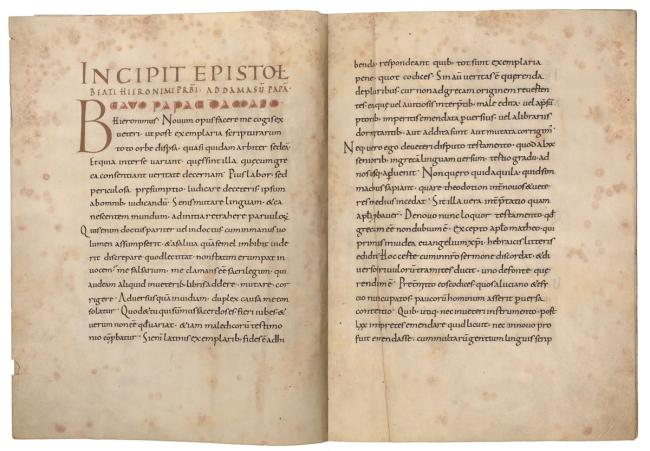 INCIPIT EPISTOL
BEATI HIERONIMI PRBI · AD DAMASU PAPA ·
BEATO PAPAE DAMASO ·
Hieronimus · Nouum opus facere me cogis ex
ueteri · ut post exemplaria scripturarum
toto orbe dispsa · quasi quidam arbiter sedea
& quia inter se uariant · quae sint illa · quae cum gre
ca consentiant ueritate decernam · Pius labor · sed
periculosa presumptio · Iudicare de ceteris ipsum
ab omnib, iudicandu · Senis mutare linguam · & ca
nescentem mundum · ad initia retrahere paruuloꝝ
Quis enim doctus pariter uel indoctus cum in manus uo
lumen assumpserit · & a saliua qua semel imbibit uide
rit discrepare quod lectitat · non statim erumpat in
uocem · me falsarium · me clamans ee sacrilegum · qui
audeam aliquid in ueterib, libris addere · mutare · cor
rigere · Aduersus qua inuidiam · duplex causa me con
solatur · Quod & tu qui summus sacerdos es · fieri iubes · &
uerum non ee qd uariat · & iam maledicoru testimo
nio cpbatur · Si eni latinis exemplarib, fides e adhi
benda respondeant quib, · tot sunt exemplaria
pene · quot codices · Sin au ueritas e querenda
de plurib, · cur non ad grecam originem reuerten
tes · ea que uel a uitiosis interptib, male edita · uel a psu
ptorib, imperitis emendata puersius · uel a librariis
dormitantib, · aut addita sunt aut mutata corrigim
Neq, uero ego de ueteri disputo testamento · quod a lxx
seniorib, in grecā linguam uersum · tertio gradu ad
nos usq, puenit · Non quero quid aquila · quid sim
machus sapiant · quare theodotion int nouos & uete
res medius incedat · Sit illa uera intptatio quam
apli pbauer · De nouo nunc loquor testamento · qd
grecum ee non dubium e · Excepto aplo matheo · qui
primus in iudea euangelium xpi · hebraicis litteris
edidit · Hoc certe cum in nro sermone discordat · & di
uersos riuulorum tramites ducit · uno de fonte que
rendum e · Pretmitto eos codices quos a luciano & esy
cio nuncupatos · paucorum hominum asserit puersa
contentio · Quib, utiq, nec in ueteri instrumento · post
lxx intpretes emendare quid licuit · nec in nouo pro
fuit emendasse · cum multarum gentium linguis scrip